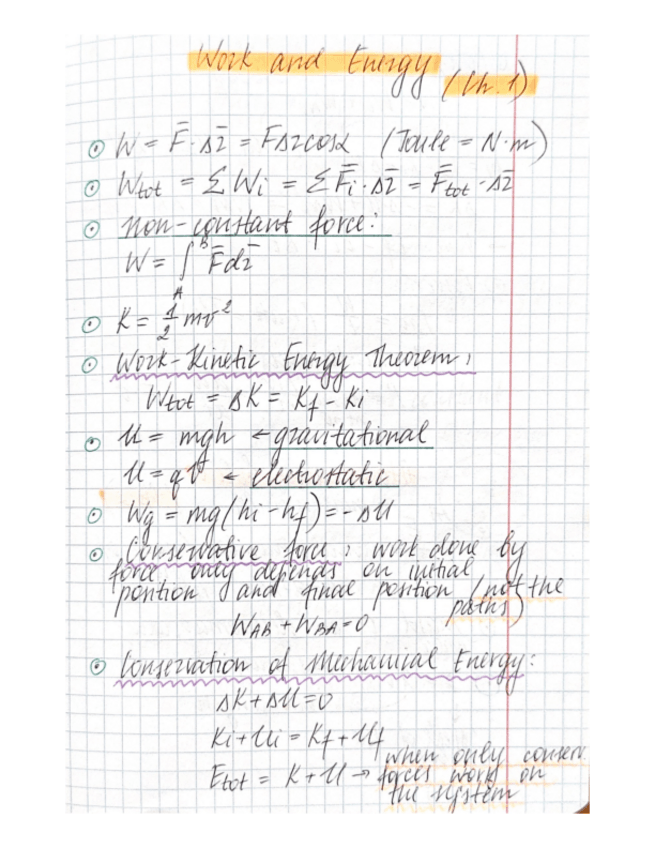 Work and Energy (Ch.1)
W = F̄ · Δr̄ = FΔrcosα (Joule = N·m)
Wtot = ΣWi = ΣF̄i·Δr̄ = F̄tot·Δr̄
non-constant force:
W = ∫_A^B F̄dr̄
K = 1/2 mv²
Work-Kinetic Energy Theorem:
Wtot = ΔK = Kf - Ki
U = mgh ← gravitational
U = qV ← electrostatic
Wg = mg(hi - hf) = -ΔU
Conservative force: work done by
force only depends on initial
position and final position (not the
paths)
WAB + WBA = 0
Conservation of Mechanical Energy:
ΔK + ΔU = 0
Ki + Ui = Kf + Uf
Etot = K + U → when only conserv.
forces work on
the system